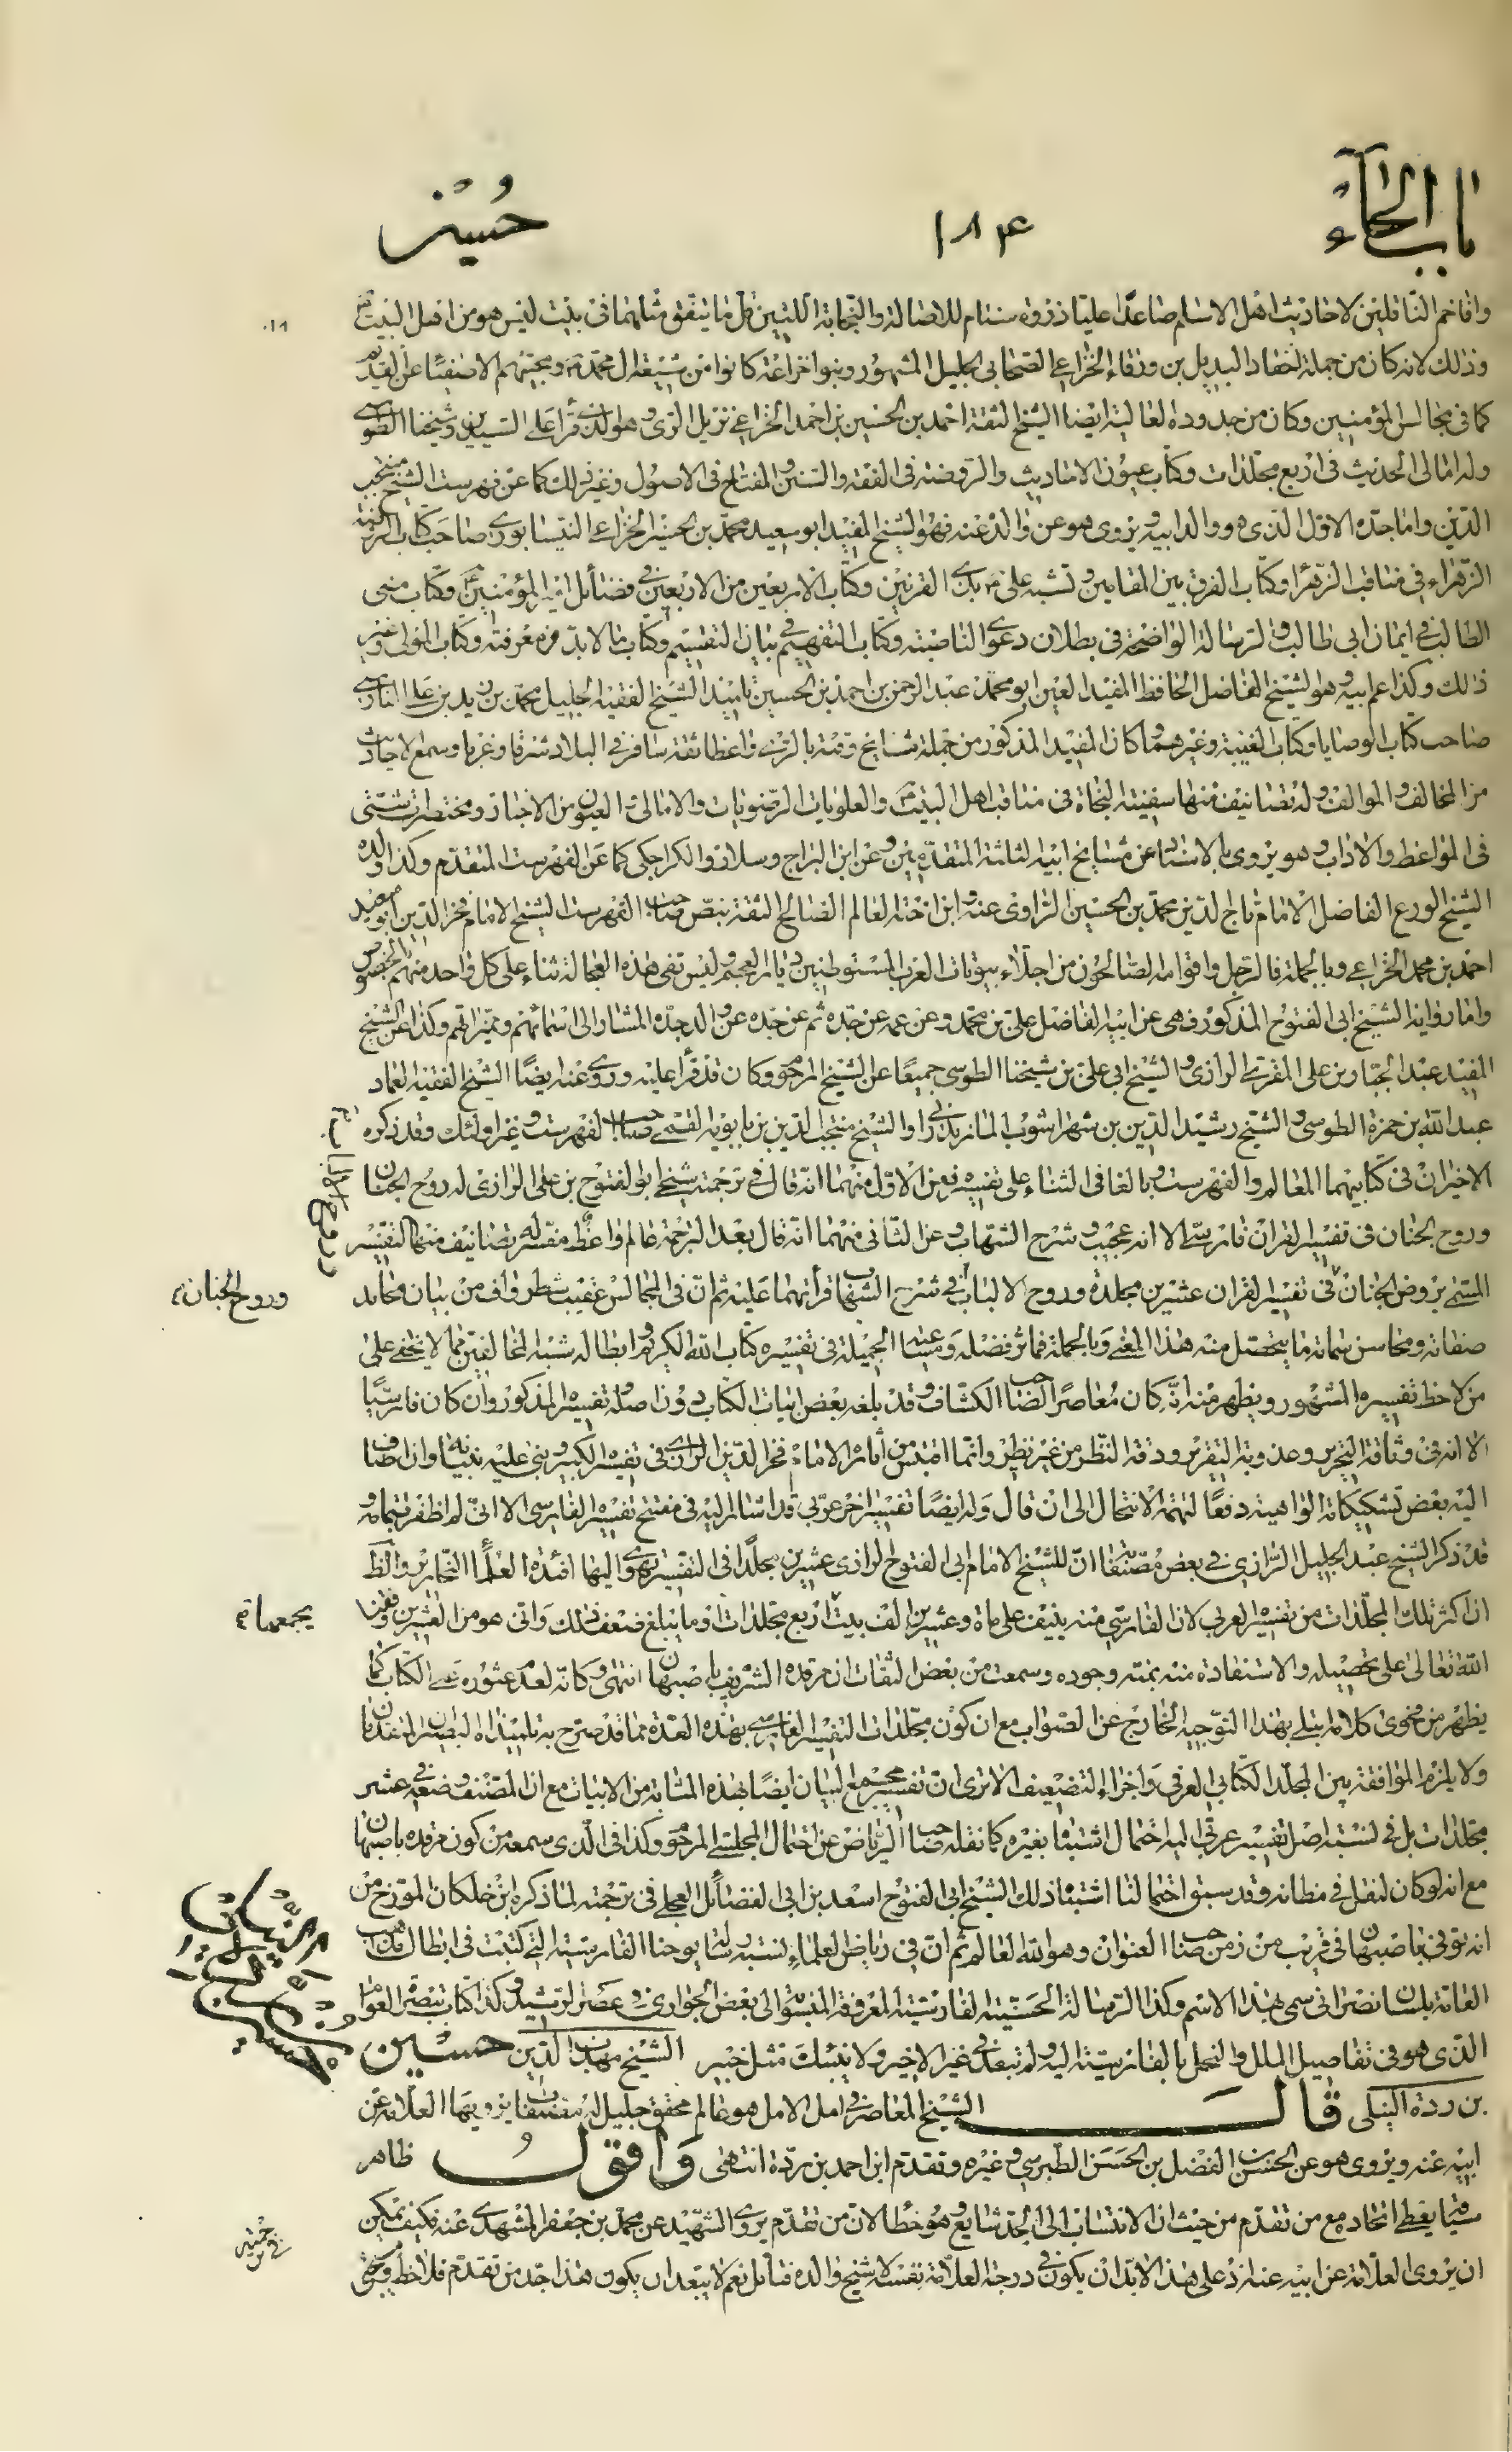 باب الحاء ١٨٤ حسين
وافاخم الناقلين لاحاديث اهل الاسلام صاعدا عليا ذروة سنام للاصالة والنجابة اللتين قل ما يتفق مثلهما فى بيت ليس هو من اهل البيت
وذلك لانه كان من جملة احفاد البديل بن ورقاء الخزاعى الصحابى الجليل المشهور وبنو اخزاعة كانوا من شيعة ال محمد ومحبيهم الاصفياء عن القديم
كما فى مجالس المؤمنين وكان من جدوده العالية ايضا الشيخ الثقة احمد بن الحسين بن احمد الخزاعى نزيل الرى وهو الذى قرأ على السيدين وشيخنا الطوسى
وله امالى الحديث فى اربع مجلدات وكتاب عيون الاحاديث والروضة فى الفقه والسنن والمفتاح فى الاصول وغير ذلك كما عن فهرست الشيخ منتجب
الدين واما جده الاول الذى هو والد ابيه ويروى هو عن والده عنه فهو الشيخ المفيد ابو سعيد محمد بن الحسين الخزاعى النيسابورى صاحب كتاب الروضة
الزهراء فى مناقب الزهراء وكتاب الفرق بين المقامين وتشبيه على بذى القرنين وكتاب الاربعين من الاربعين فى فضائل امير المؤمنين وكتاب منى
الطالب فى ايمان ابى طالب والرسالة الواضحة فى بطلان دعوى الناصبة وكتاب التفهيم فى بيان التقسيم وكتاب ما لابد من معرفته وكتاب المولى وغير
ذلك وكذا عم ابيه وهو الشيخ الفاضل الحافظ المفيد العين ابو محمد عبد الرحمن بن احمد بن الحسين تلميذ الشيخ الفقيه الجليل محمد بن زيد بن على الفارسى
صاحب كتاب الوصايا وكتاب الغيبة وغيرهما كان المفيد المذكور من جملة مشايخ وقته بالرى واعظا ثقة سافر فى البلاد شرقا وغربا وسمع الاحاديث
من المخالف والموالف وله تصانيف منها سفينة النجاة فى مناقب اهل البيت والعلويات الرضويات والامالى العيون من الاخبار ومختصرات شتى
فى المواعظ والاداب وهو يروى بالاسناد عن مشايخ ابيه الثلثة المتقدمين وعن ابن البراج وسلار والكراجكى كما عن الفهرست المتقدم وكذا والده
الشيخ الورع الفاضل الامام تاج الدين محمد بن الحسين الراوى عنه وابن اخته العالم الصالح الثقة بنص صاحب الفهرست الشيخ الامام فخر الدين ابو سعيد
احمد بن محمد الخزاعى وبالجملة فالرجل واقوامه الصالحون من اجلاء بيوتات العرب المستوطنين ديار العجم وليس تفى هذه العجالة ثناء على كل واحد منهم بالخصوص
واما رواية الشيخ ابى الفتوح المذكور فهى عن ابيه الفاضل على بن محمد وعن عمه عن جده ثم عن جده عن والد جده المشار الى اسمائهم وميزاتهم وكذا عن الشيخ
المفيد عبد الجبار بن على المقرى الرازى والشيخ ابى على بن شيخنا الطوسى جميعا عن الشيخ المرحوم وكان قد قرأ عليه وروى عنه ايضا الشيخ الفقيه العماد
عبد الله بن حمزة الطوسى والشيخ رشيد الدين بن شهراشوب المازندرانى والشيخ منتجب الدين بن بابويه القمى صاحب الفهرست وغير اولئك وقد ذكره
الاخيران فى كتابيهما المعالم والفهرست وبالغا فى الثناء على تفسيره فعن الاول منهما انه قال فى ترجمته شيخى ابو الفتوح بن على الرازى له روح الجنان
وروح الجنان فى تفسير القران فارسى الا انه عجيب وشرح الشهاب وعن الثانى منهما انه قال بعد الترجمة عالم واعظ مفسر له تصانيف منها التفسير
المسمى بروض الجنان فى تفسير القران عشرين مجلدة وروح الالباب فى شرح الشهاب قرأتهما عليه ثم ان فى المجالس عقيب شطر واف من بيان محامد
وروح الجنان
صفاته ومحاسن سماته ما يتحصل منه هذا المعنى وبالجملة فماثر فضله ومساعيه الجميلة فى تفسيره كتاب الله الكريم وابطاله شبه المخالفين مما لا يخفى على
من لاحظ تفسيره المشهور ويظهر منه انه كان معاصرا لصاحب الكشاف وقد بلغه بعض ابيات الكتاب دون اصله وتفسيره المذكور وان كان فارسيا
الا انه فى وثاقة التحرير وعذوبة التقرير ودقة النظر من غير نظير وانما اقتبس من آثاره الامام فخر الدين الرازى فى تفسيره الكبير وبنى عليه بنيانه وان اضاف
اليه بعض تشكيكاته الواهية دفعا لتهمة الانتحال الى ان قال وله ايضا تفسير اخر عربى قد اشار اليه فى مفتتح تفسيره الفارسى الا انى لم اظفر بتمامه و
قد ذكر الشيخ عبد الجليل الرازى فى بعض مصنفاته ان للشيخ الامام ابى الفتوح الرازى عشرين مجلدا فى التفسير يهوى اليها افئدة العلماء النحارير والظ
ان اكثر تلك المجلدات من تفسيره العربى لان الفارسى منه ينيف على ماة وعشرين الف بيت اربع مجلدات او ما يبلغ ضعف ذلك وانى هو من العشرين وفقنا
الله تعالى على تحصيله والاستفادة منه بمنه وجوده وسمعت من بعض الثقات ان مرقده الشريف باصبهان انتهى وكانه لعدم عثوره على الكتاب كما
يظهر من فحوى كلامه ابتلى بهذا التوجيه الخارج عن الصواب مع ان كون مجلدات التفسير الفارسى بهذه العدة مما قد صرح به تلميذاه البصيران المتقدمان
ولا يلزم الموافقة بين المجلد الكتابى العرفى واجزاء التضعيف الا ترى ان تفسير مجمع البيان ايضا بهذه المثابة من الابيات مع ان المصنف وضعه فى عشر
مجلدات بل فى نسبة اصل تفسير عربى اليه احتمال اشتباه بغيره كما نقله صاحب الرياض عن احتمال المجلسى المرحوم وكذا فى الذى سمعه من كون مرقده باصبهان
مع انه لو كان لنقل فى مظانه وقد سبق احتمالنا اشتباه ذلك الشيخ ابى الفتوح اسعد بن ابى الفضائل العجلى فى ترجمته لما ذكره ابن خلكان المورخ من
انه توفى باصبهان فى قريب من زمن صاحب العنوان وهو الله العالم ثم ان فى رياض العلماء نسبة رسالة يوحنا الفارسية التى كتبت فى ابطال مذاهب
العامة بلسان نصرانى سمى بهذا الاسم وكذا الرسالة الحسنية الفارسية المعروفة المنسوبة الى بعض الجوارى فى عصر الرشيد وكذا كتاب تبصرة العوام
الذى هو فى تفاصيل الملل والنحل بالفارسية اليه ولم تبعد فى غير الاخير ولا ينبئك مثل خبير الشيخ مهذب الدين حسين
بن ردة النيلى قال الشيخ المعاصر فى امل الامل هو عالم محقق جليل له مصنفات يرويها العلامة عن
ابيه عنه ويروى هو عن الحسن بن الفضل بن الحسن الطبرسى وغيره وتقدم ابن احمد بن ردة انتهى واقول ظاهر
سياقه يعطى اتحاده مع من تقدم من حيث ان الانتساب الى الجد شايع وهو خطا لان من تقدم يروى الشهيد عن محمد بن جعفر المشهدى عنه فكيف يمكن
ان يروى العلامة عن ابيه عنه اذ على هذا لابد ان يكون فى درجة العلامة نفسه لا شيخ والده فتامل نعم لا يبعد ان يكون هذا جد من تقدم فلاحظ